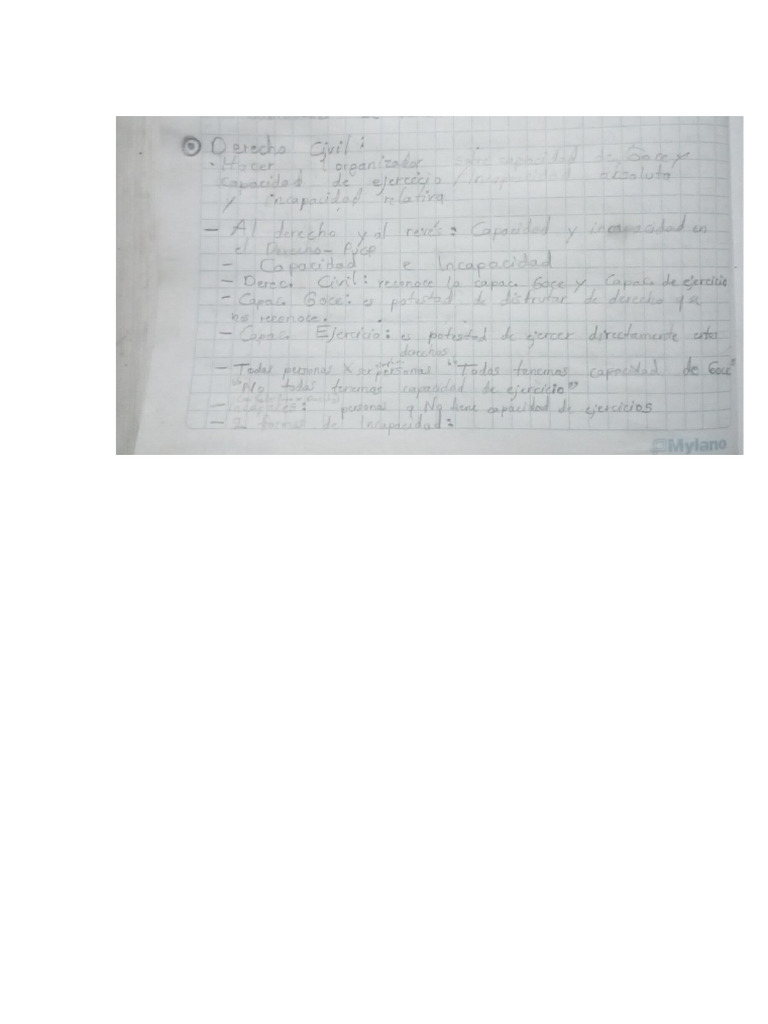 Derecho Civil:
· Hacer 1 organizador sobre capacidad de Goce y
capacidad de ejercicio / incapacidad absoluta
y incapacidad relativa
- Al derecho y al revés: Capacidad y incapacidad en
el Derecho - PUCP
- Capacidad e Incapacidad
- Derec. Civil: reconoce la capac. Goce y Capac. de ejercicio
- Capac. Goce: es potestad de disfrutar de derecho q se
nos reconoce.
- Capac. Ejercicio: es potestad de ejercer directamente estos
derechos
- Todas personas x ser personas "Todas tenemos capacidad de Goce"
"No todas tenemos capacidad de ejercicio"
- Incapaces: personas q No tiene capacidad de ejercicios
- 2 formas de Incapacidad:
Mylano